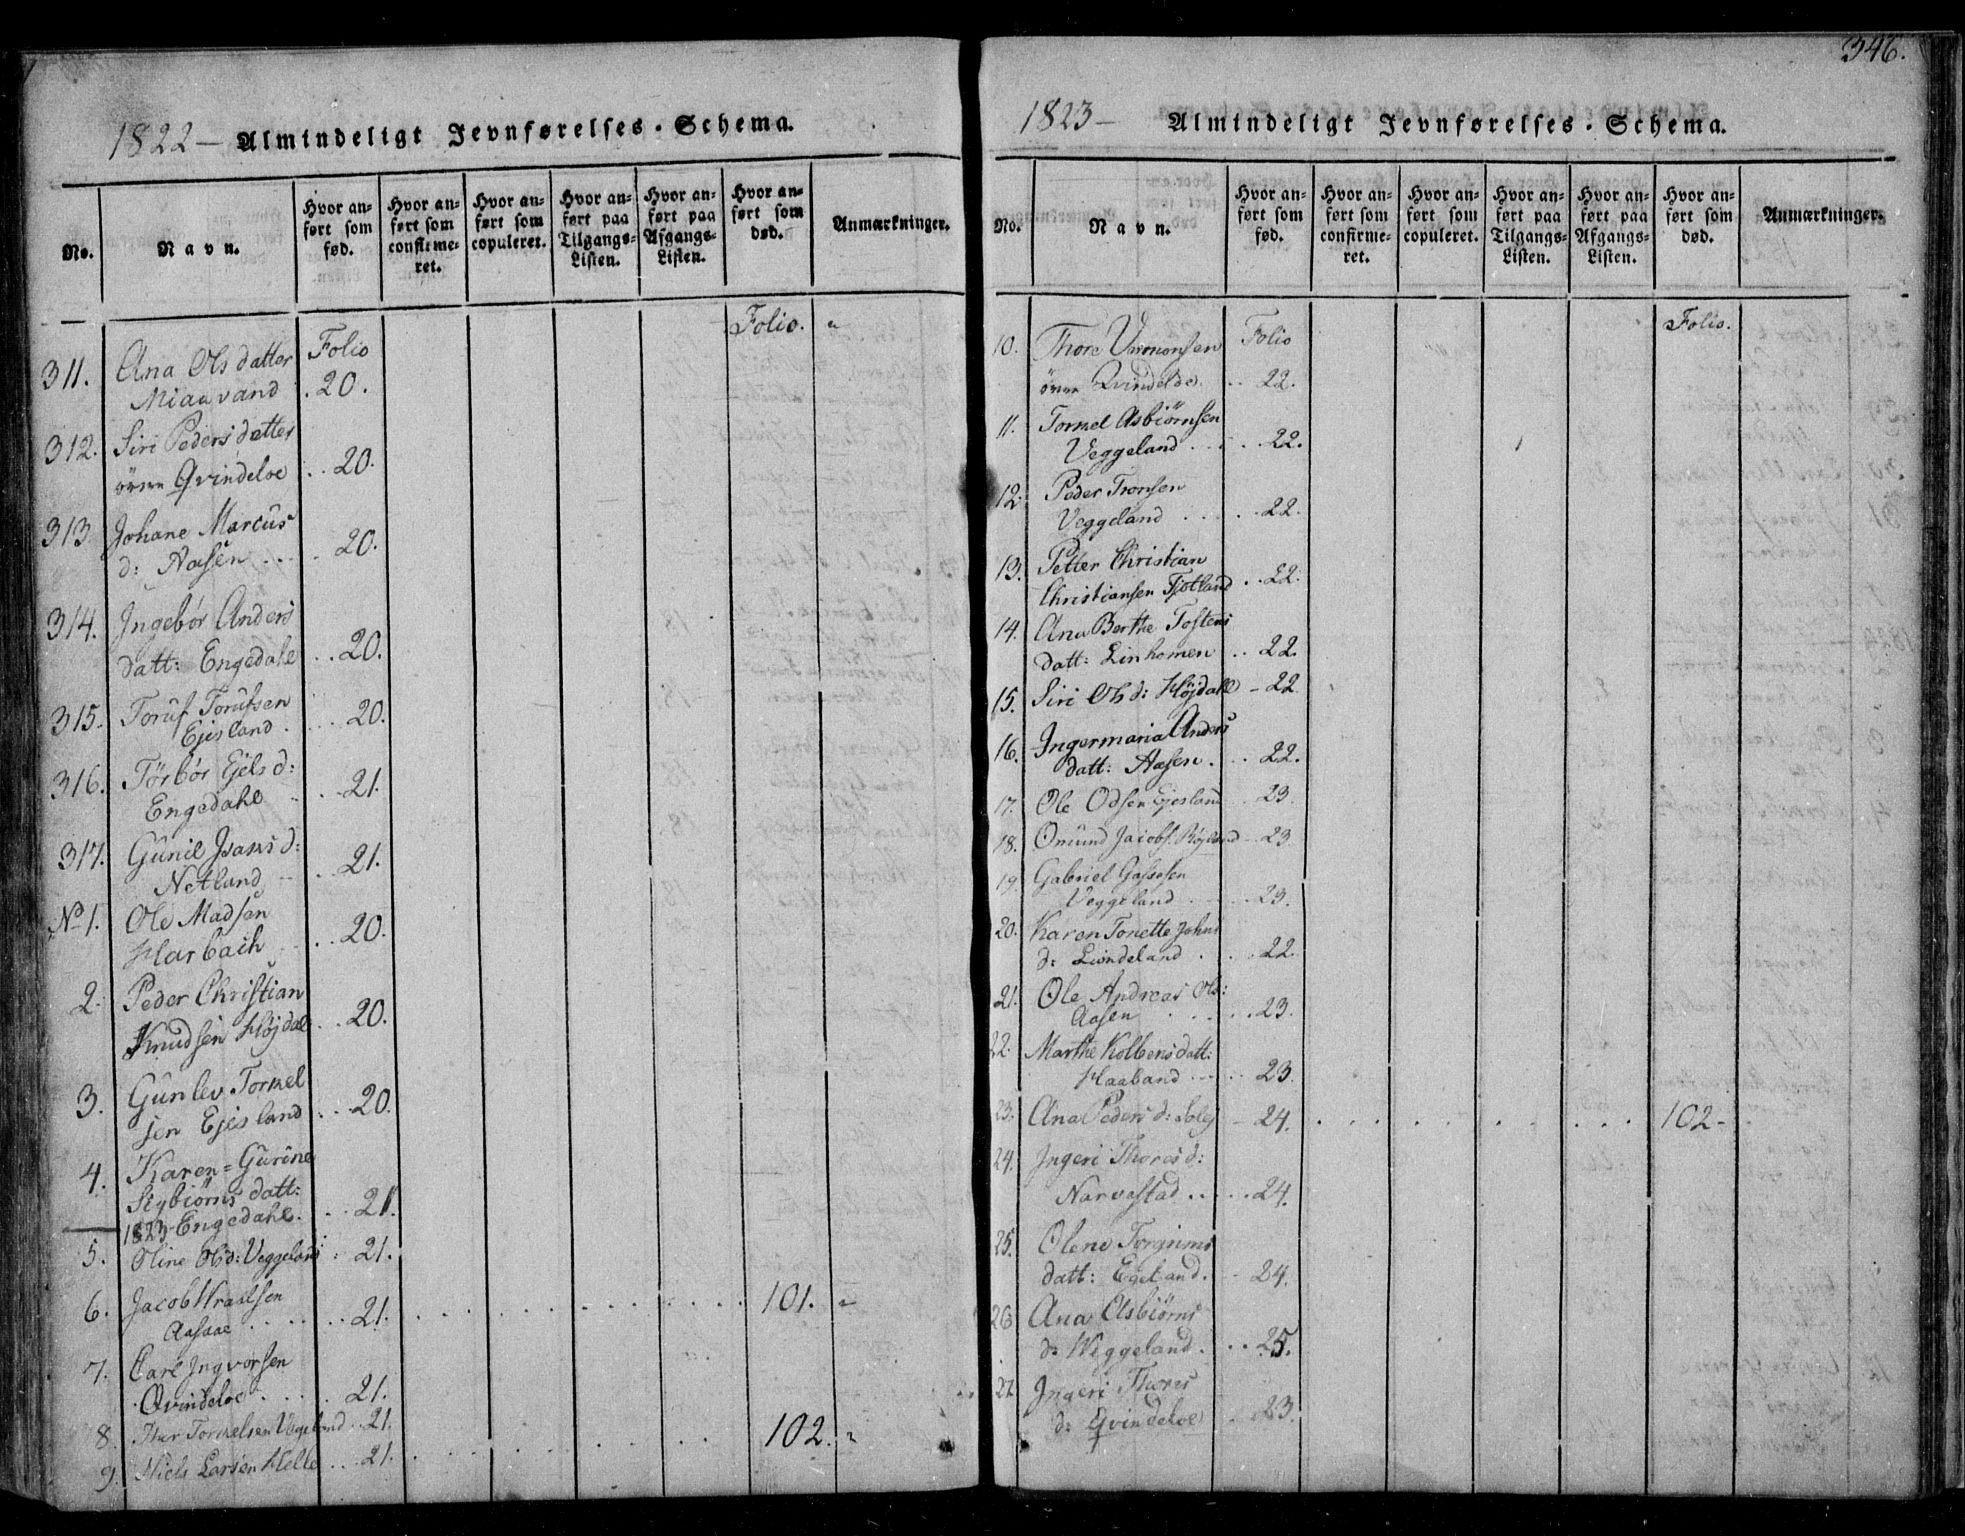 1822 — Almindeligt Jevnførelses-Schema.
No.
Navn.
Hvor an-
ført som
fød.
Hvor an-
ført som
confirme-
ret.
Hvor an-
ført som
copuleret.
Hvor an-
ført paa
Tilgangs-
Listen.
Hvor an-
ført paa
Afgangs-
Listen.
Hvor an-
ført som
død.
Anmærkninger.
Folio. "
311. Ana Olsdatter Folio
Miaavand . 20.
312. Siri Pedersdatter
övre Qvindeloe . . 20.
313. Johane Marcus
d: Naasen . . . . 20.
314. Ingebör Anders
datt: Engedahl . . 20.
315. Toruf Torufsen
Ejesland . . . 20.
316. Törbör Ejels d:
Engedahl . . 21.
317. Gunil Isaks d:
Netland . . 21.
No 1. Ole Madsen
Harbach . . 20.
2. Peder Christian
Knudsen Höjdal . . 20.
3. Gunlev Tormel
sen Ejesland . . 20.
4. Karen = Gurine
Sigbiörns datt:
1823 Engedahl. . . 21.
5. Oline Ols d: Veggeland : 21.
6. Jacob
Aasaae . . . . . 21. . . . . . . . . . . 101. "
7. Carl Ingvorsen
Qvindeloe . . . . 21.
8. Thor Tormelsen Vegeland . . 21.
9. Niels Larsen Helle . . . 21. . . . . . . . . 102. "
346.
1823 — Almindeligt Jevnførelses-Schema.
No.
Navn.
Hvor an-
ført som
fød.
Hvor an-
ført som
confirme-
ret.
Hvor an-
ført som
copuleret.
Hvor an-
ført paa
Tilgangs-
Listen.
Hvor an-
ført paa
Afgangs-
Listen.
Hvor an-
ført som
død.
Anmærkninger.
Folio.
10. Thore Folio
övre Qvindeloe. . . 22.
11. Tormel Asbiörnsen
Veggeland . . . . . 22.
12. Peder Tronsen
Veggeland . . . . . 22.
13. Petter Christian
Christiansen Fjotland . . 22.
14. Ana Berthe Tostens
datt: Linhomen . . 22.
15. Siri Ols d: Höjdahl – 22
16. Ingermaria Anders
datt: Aasen . . . 22.
17. Ole Odsen Ejesland 23.
18. Omund Jacobs. Röjland – 23
19. Gabriel
Veggeland . . . . 23.
20. Karen Tonette Johns
d: Lindeland . . . 22.
21. Ole Andreas Ols:
Aasen . . . . . 23.
22. Marthe Kolbens datt:
Haaland . . . . 23.
23. Ana Peders d: – 24. . . . . . . . . . 102 –
24. Ingeri Thores d:
Narvestad . . . . 24.
25. Olene Torgrims
datt: Egeland. – 24.
26. Ana Asbiörns
d: Weggeland. . . 25.
27. Ingeri Thores
d: Qvindeloe . 23.